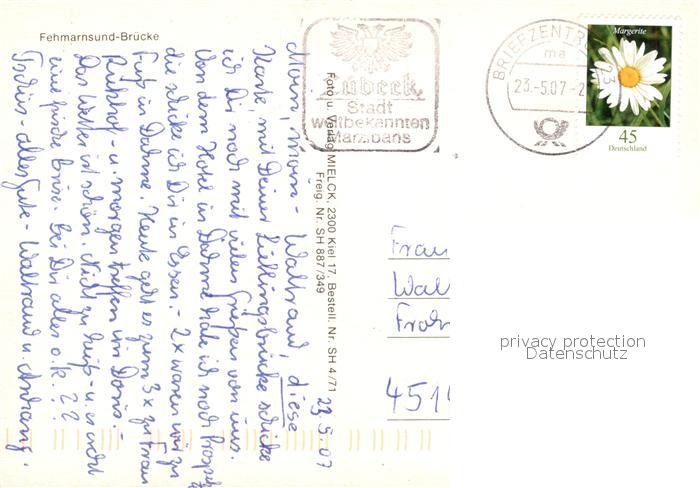 Fehmarnsund-Brücke
Lübeck
Stadt
weltbekannten
Marzipans
BRIEFZENTRUM 23
ma
23.-5.07-2
Margerite
45
Deutschland
Foto u. Verlag MIELCK, 2300 Kiel 17, Bestell. Nr. SH 4/71
Freig. Nr. SH 887/349
23.5.07
Moin, moin - Waltraud, diese
Karte mit Deiner Lieblingsbrücke schicke
ich Dir noch mit vielen Grüßen von uns.
Von dem Hotel in Dahme habe ich noch Prospekt
die schicke ich Dir in Essen. - 2x waren wir zu
Fuß in Dahme. Heute geht es zum 3x zu Frau
u. morgen treffen wir Doris. -
Das Wetter ist schön. Nicht zu heiß - u. es weht
eine frische Brise. Bei Dir alles o.k.??
Tschüss - alles Gute - Waltraud u. Anhang.
Frau
Wal
Froh
4514
privacy protection
Datenschutz